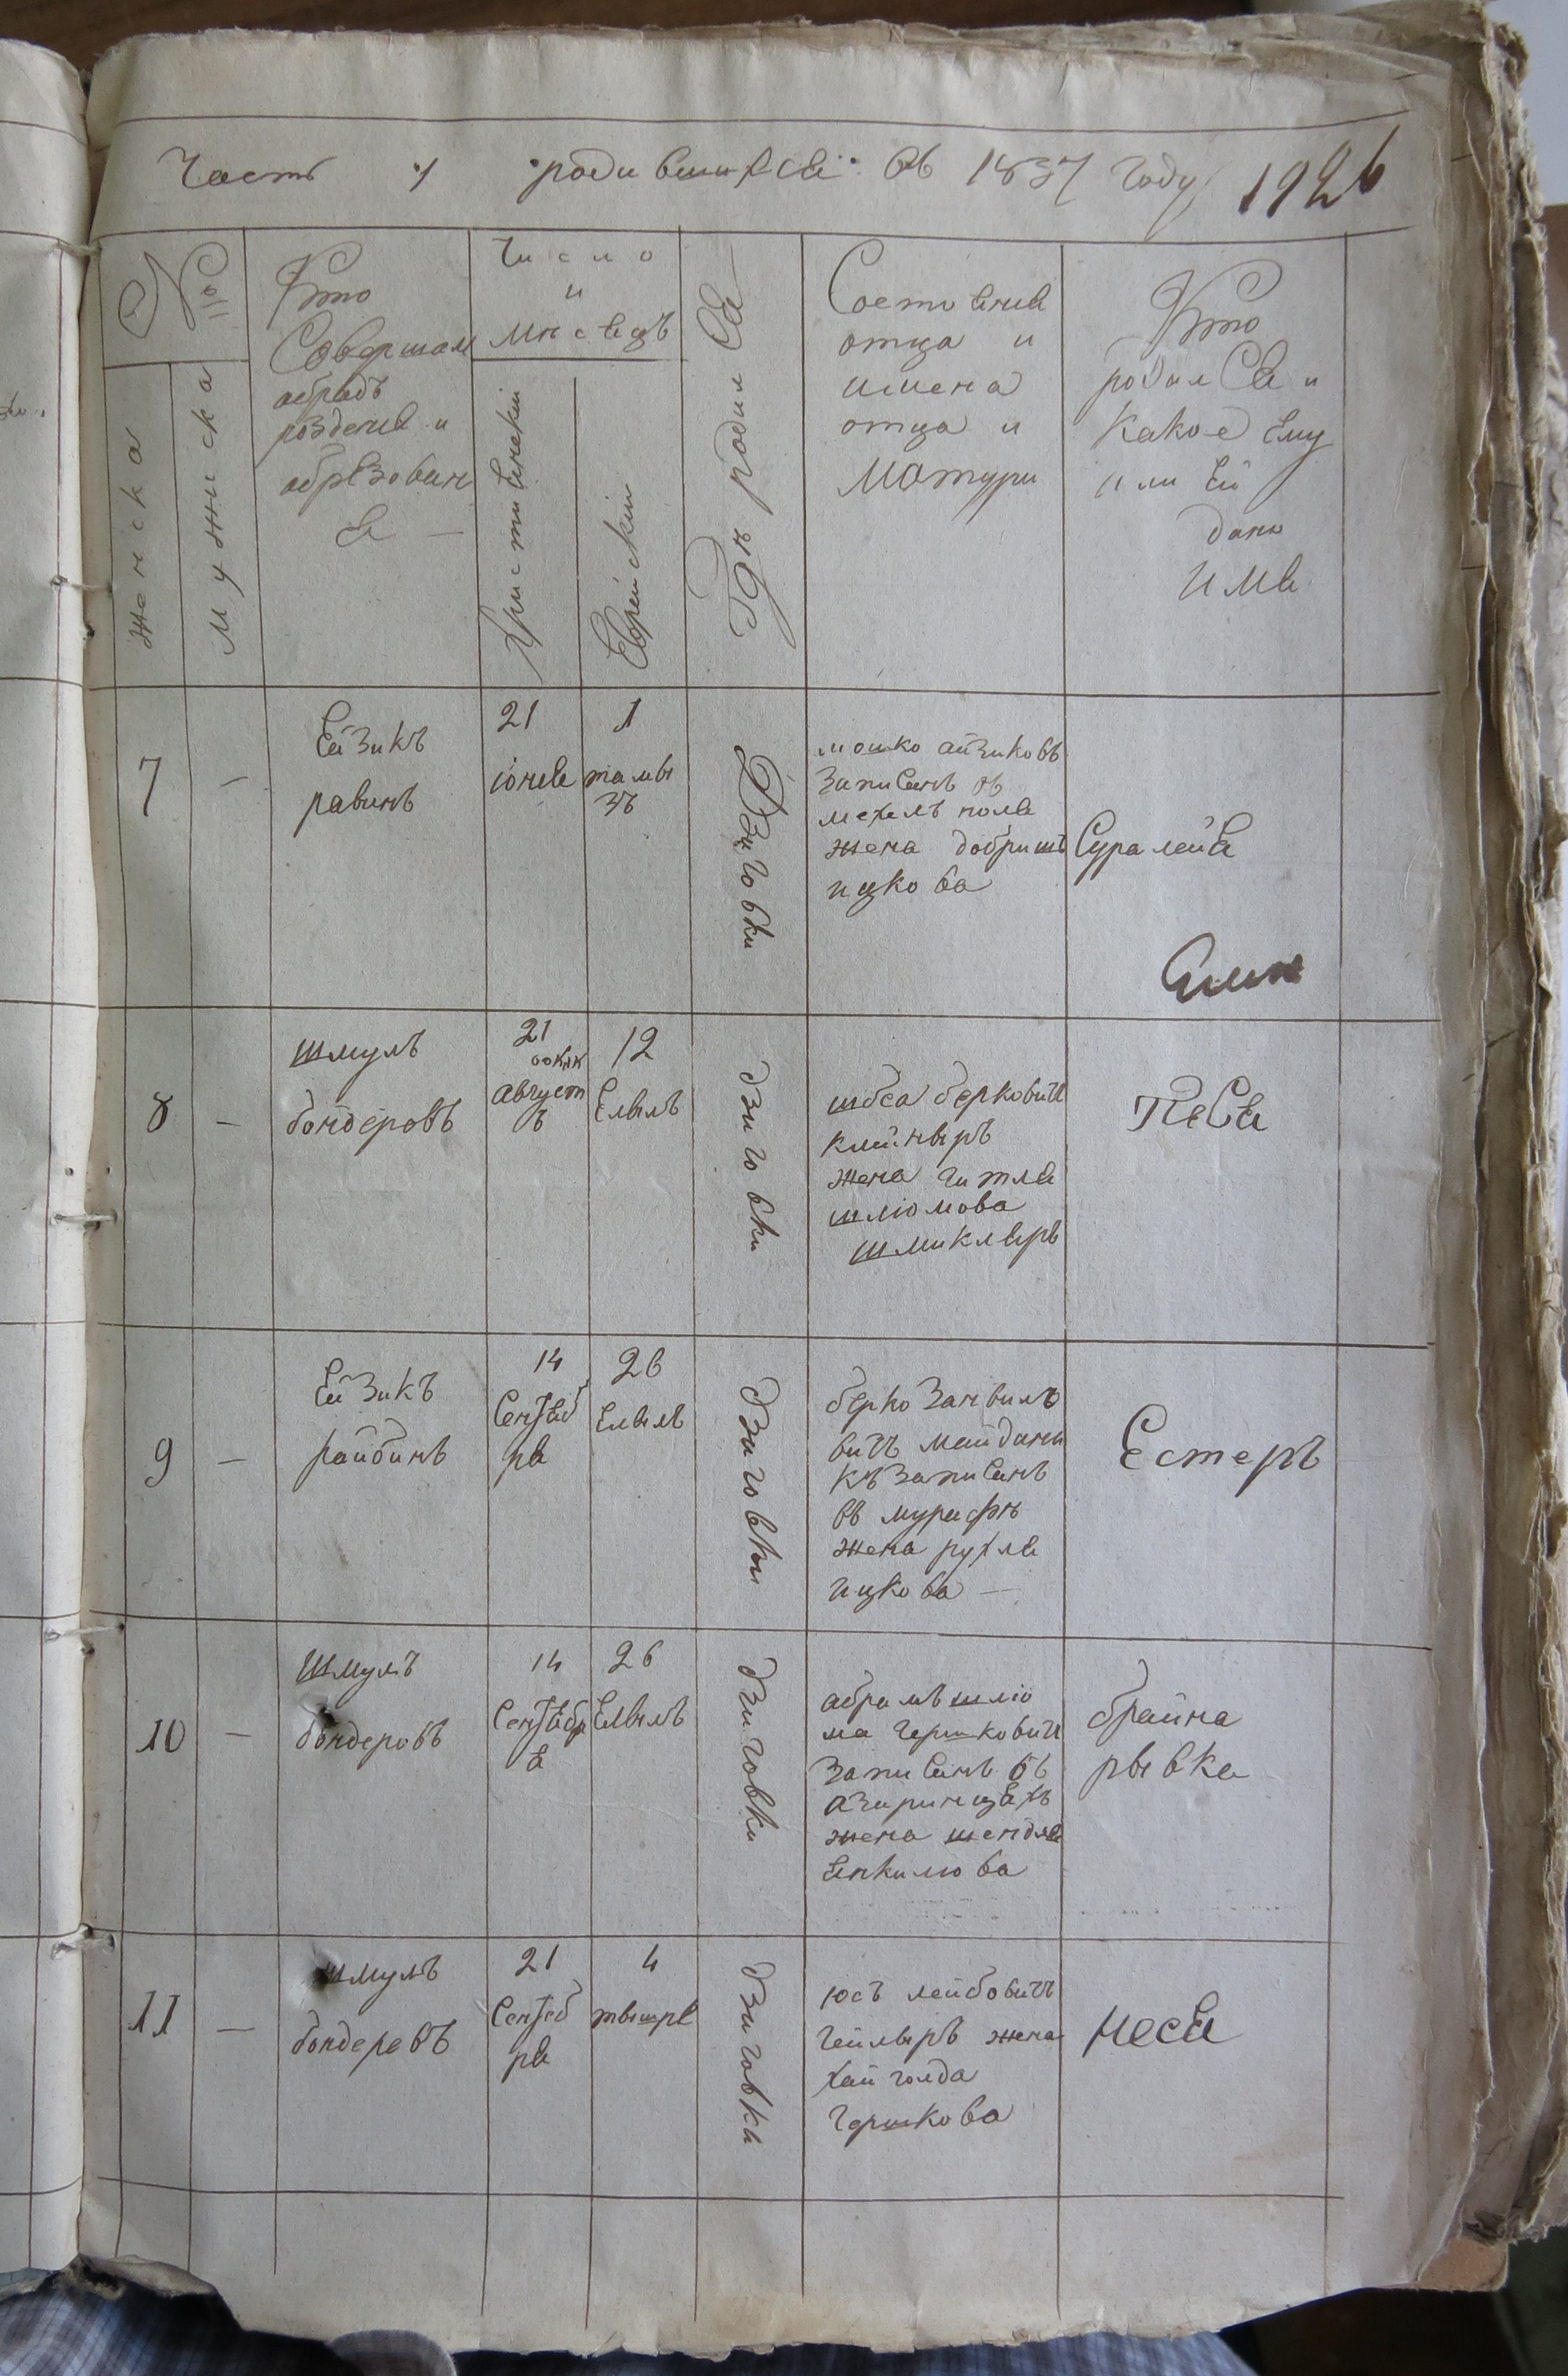 Часть 1 родившихся въ 1837 году 1126
№
женска
мужиска
Кто
Совершал
обрадъ
роздения и
обрезован
я —
Число
и
мнсяцъ
Христиенский
Еврейский
Гдн родился
Состояния
отца и
имена
отца и
матури
Кто
родился и
какое ему
или ей
дано
имя
7
—
Ейзикъ
равинъ
21
июня
1
тамы
зъ
Дзиговки
мошко айзиковъ
записанъ въ
мехлъ поля
жена добришъ
ицкова
Сура лейя
8
—
шмулъ
бондеровъ
21
август
ъ
12
Елылъ
дзиговки
шбса берковичъ
клейныръ
жена гитля
шлюмова
шмикляръ
песя
9
—
Ейзикъ
райбинъ
14
Сентяб
ря
26
Елылъ
дзиговки
берко Занвилъ
вичъ майдани
къ записанъ
въ мурафн
жена рухля
ицкова —
Естеръ
10
—
шмулъ
бондеровъ
14
Сентябр
я
26
Елылъ
дзиговки
абрамъ шлю
ма гершковичъ
записанъ въ
азаринцяхъ
жена шендля
янкилова
брайна
рывка
11
—
шмулъ
бондеревъ
21
Сентяб
ря
4
тышре
дзиговки
юсъ лейбовичъ
геилыръ жена
хай голда
гершкова
неся